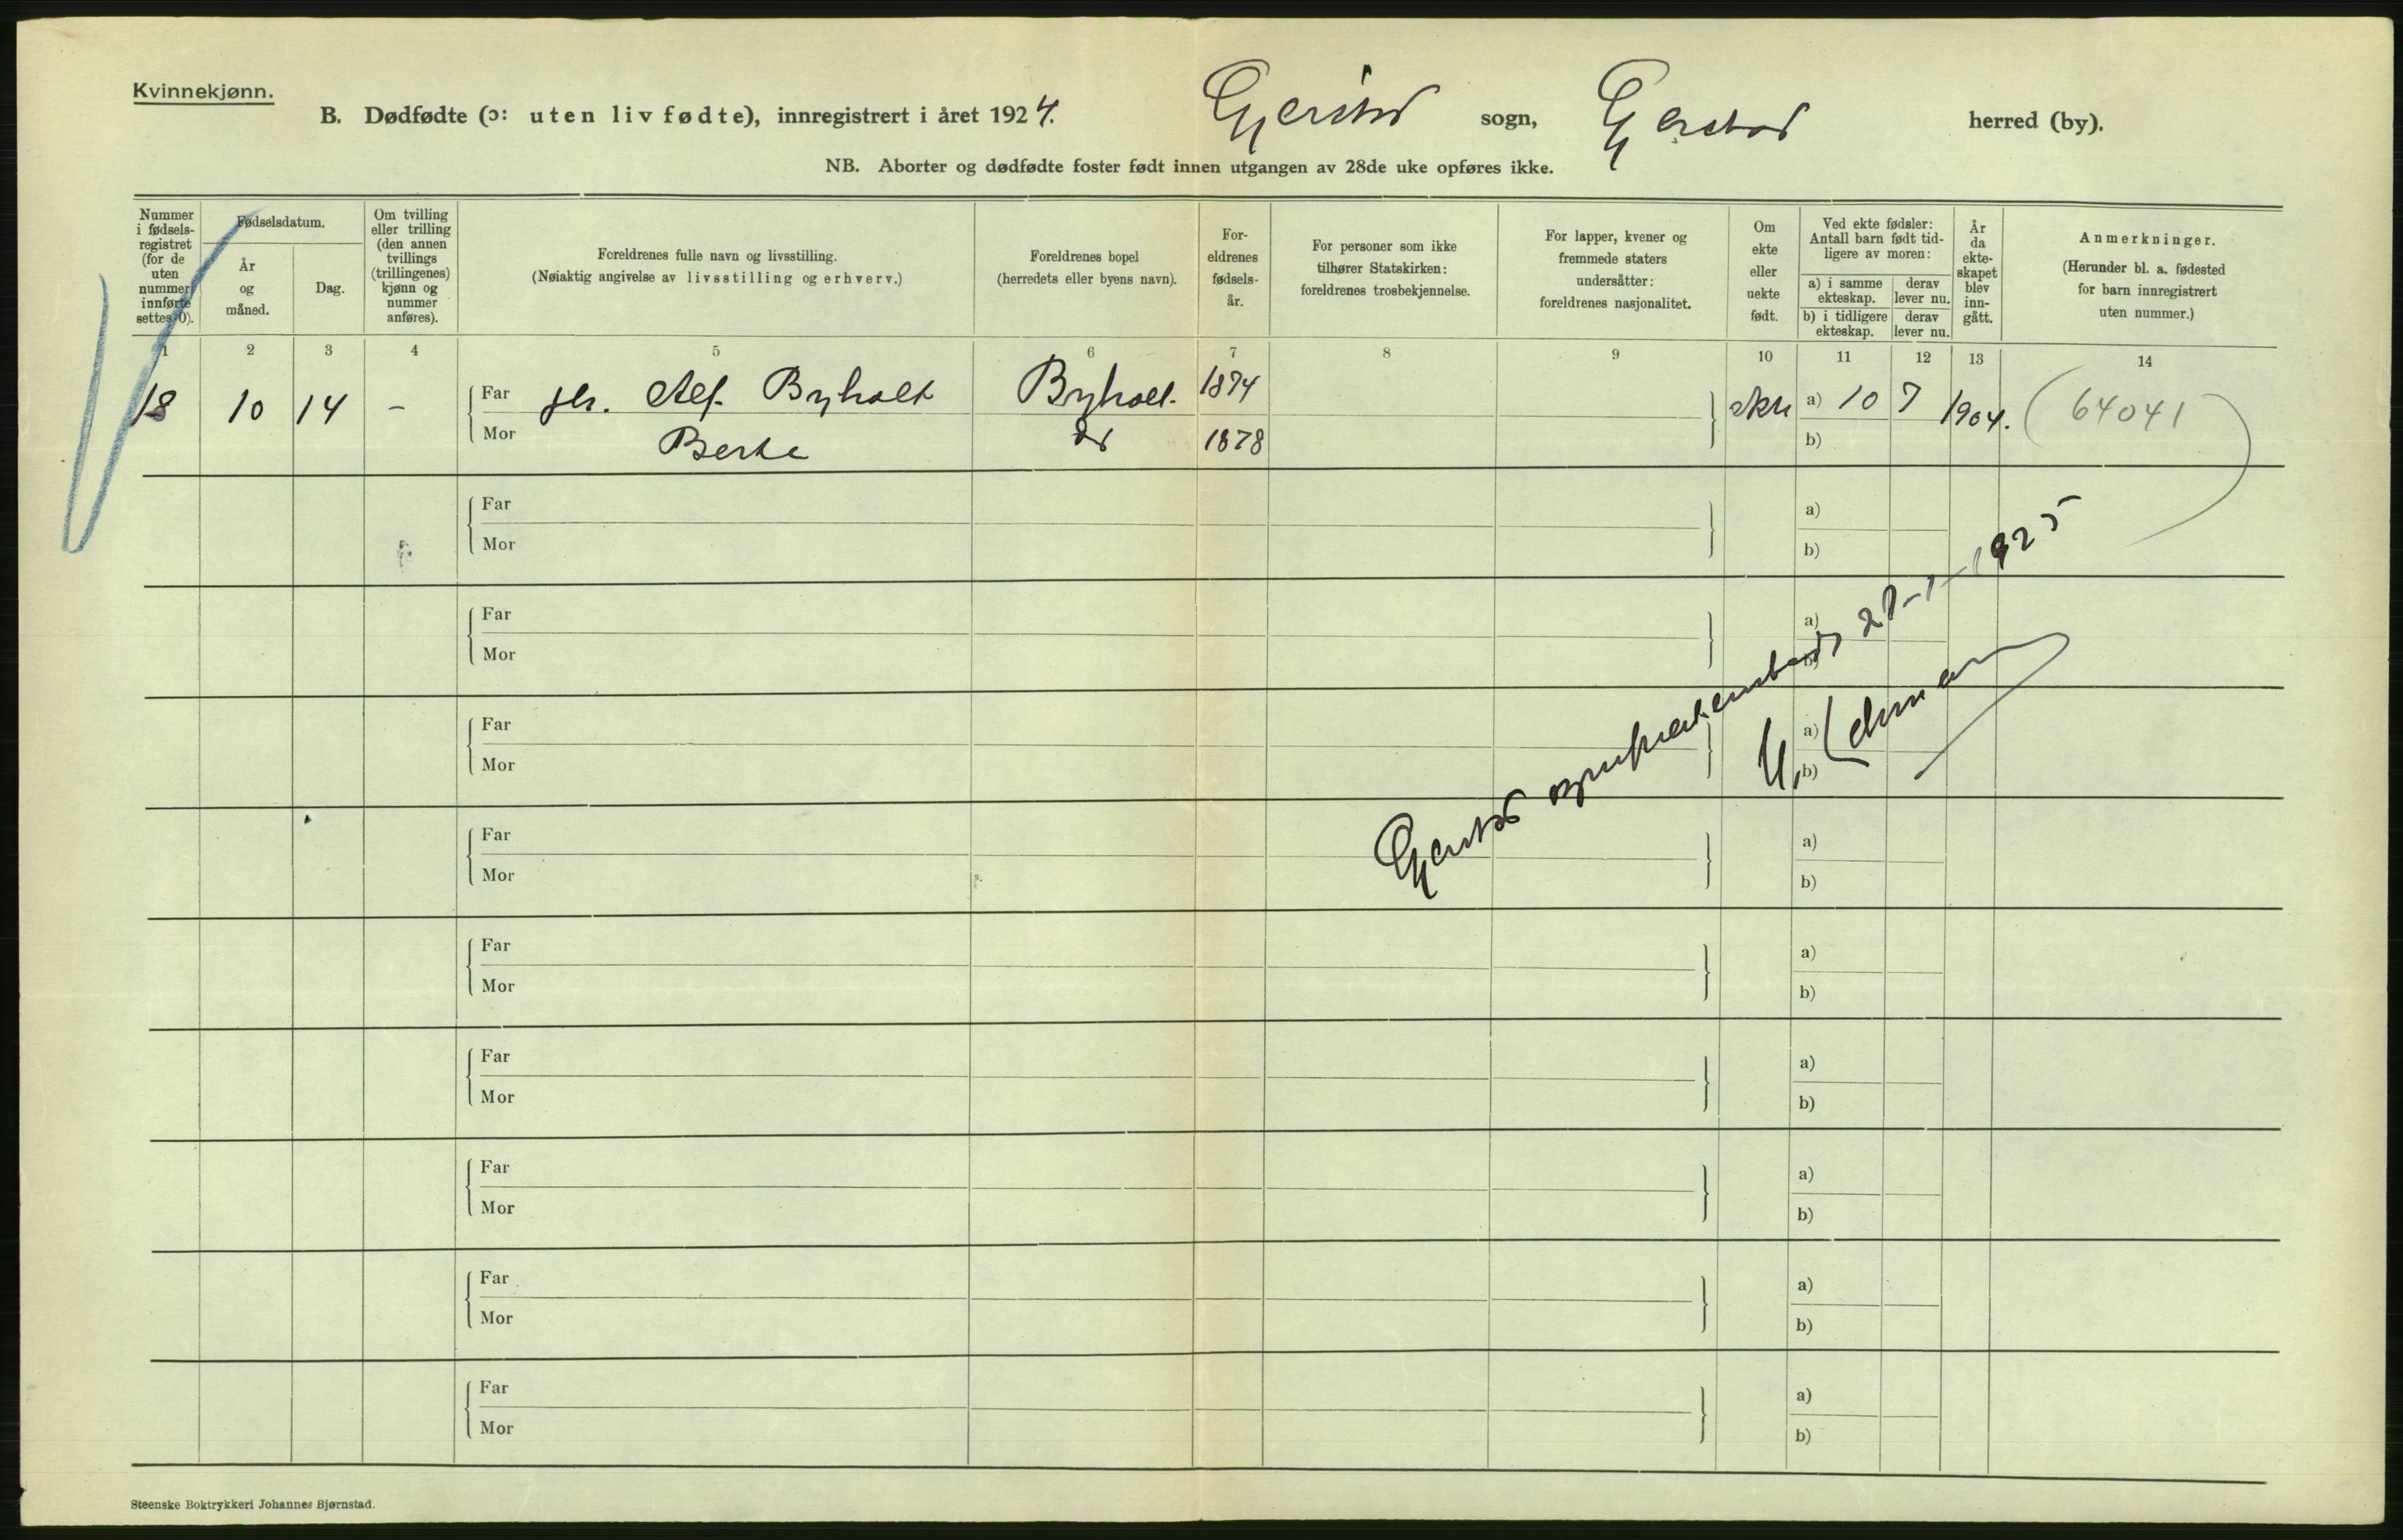 Kvinnekjønn.
B. Dødfødte (ɔ: uten liv fødte), innregistrert i året 1924. Gjerstad sogn, Gjerstad herred (by).
NB. Aborter og dødfødte foster født innen utgangen av 28de uke opføres ikke.
Nummer i fødsels-registret (for de uten nummer innførte settes 0).
Fødselsdatum.
År og måned.
Dag.
Om tvilling eller trilling (den annen tvillings (trillingenes) kjønn og nummer anføres).
Foreldrenes fulle navn og livsstilling.
(Nøiaktig angivelse av livsstilling og erhverv.)
Foreldrenes bopel
(herredets eller byens navn).
For-eldrenes fødsels-år.
For personer som ikke tilhører Statskirken: foreldrenes trosbekjennelse.
For lapper, kvener og fremmede staters undersåtter: foreldrenes nasjonalitet.
Om ekte eller uekte født.
Ved ekte fødsler: Antall barn født tid-ligere av moren:
a) i samme ekteskap.
derav lever nu.
b) i tidligere ekteskap.
derav lever nu.
År da ekte-skapet blev inn-gått.
Anmerkninger.
(Herunder bl. a. fødested for barn innregistrert uten nummer.)
1 2 3 4 5 6 7 8 9 10 11 12 13 14
18 10 14 - Far Alf Byholt Byholt 1874 ekte a) 10 7 1904. (64041)
Mor Berte do 1878 b)
Far a)
Mor b)
Far a)
Mor b)
Far a)
Mor b)
Far a)
Mor b)
Far a)
Mor b)
Far a)
Mor b)
Far a)
Mor b)
Far a)
Mor b)
Far a)
Mor b)
Gjerstad sogneprestembede 27-1-1925
Steenske Boktrykkeri Johannes Bjørnstad.